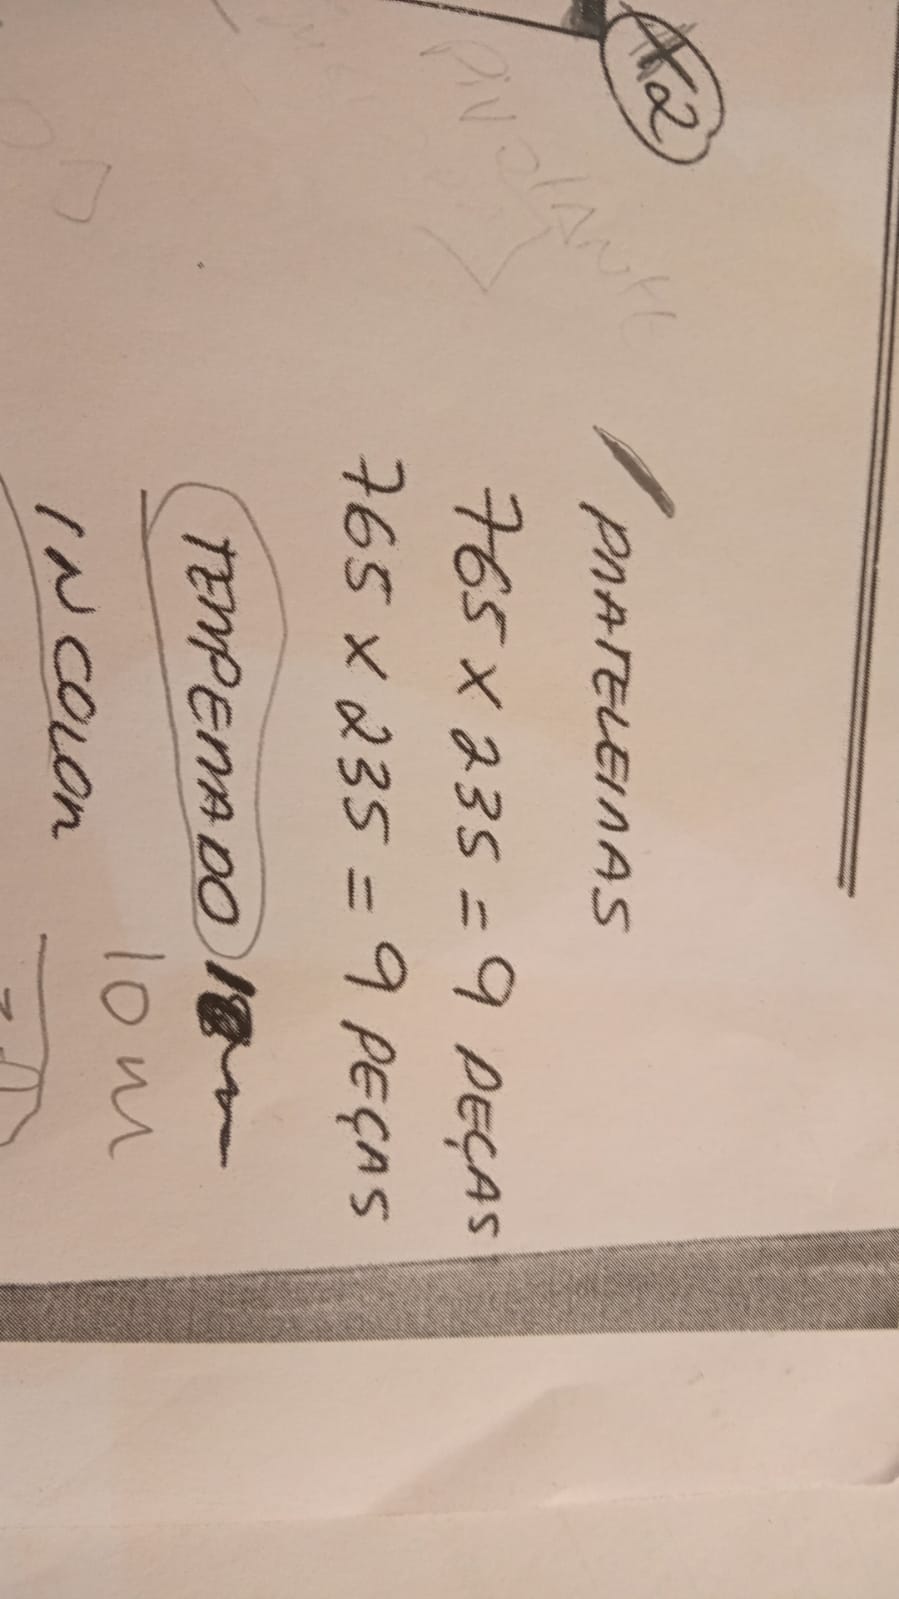 X2
PRATELEIRAS
765 x 235 = 9 PEÇAS
765 x 235 = 9 PEÇAS
TEMPERADO
10 m
INCOLOR